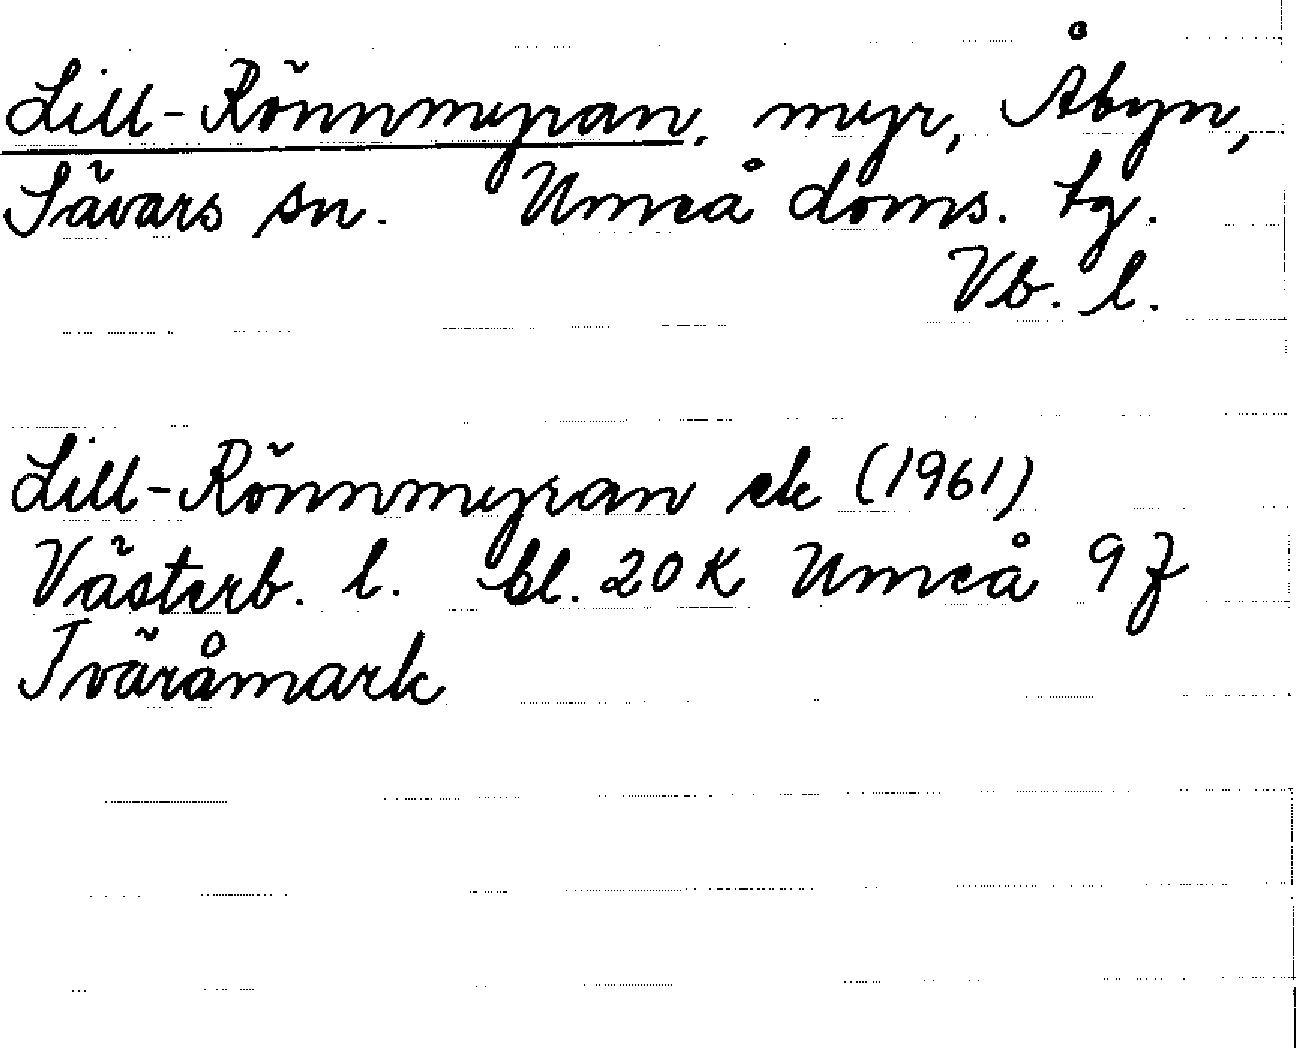 Lill-Rönnmyran, myr, Åbyn,
Sävars sn. Umeå doms. tg.
Vb. l.
Lill-Rönnmyran ek (1961)
Västerb. l. bl. 20 K Umeå 9 f
Tväråmark